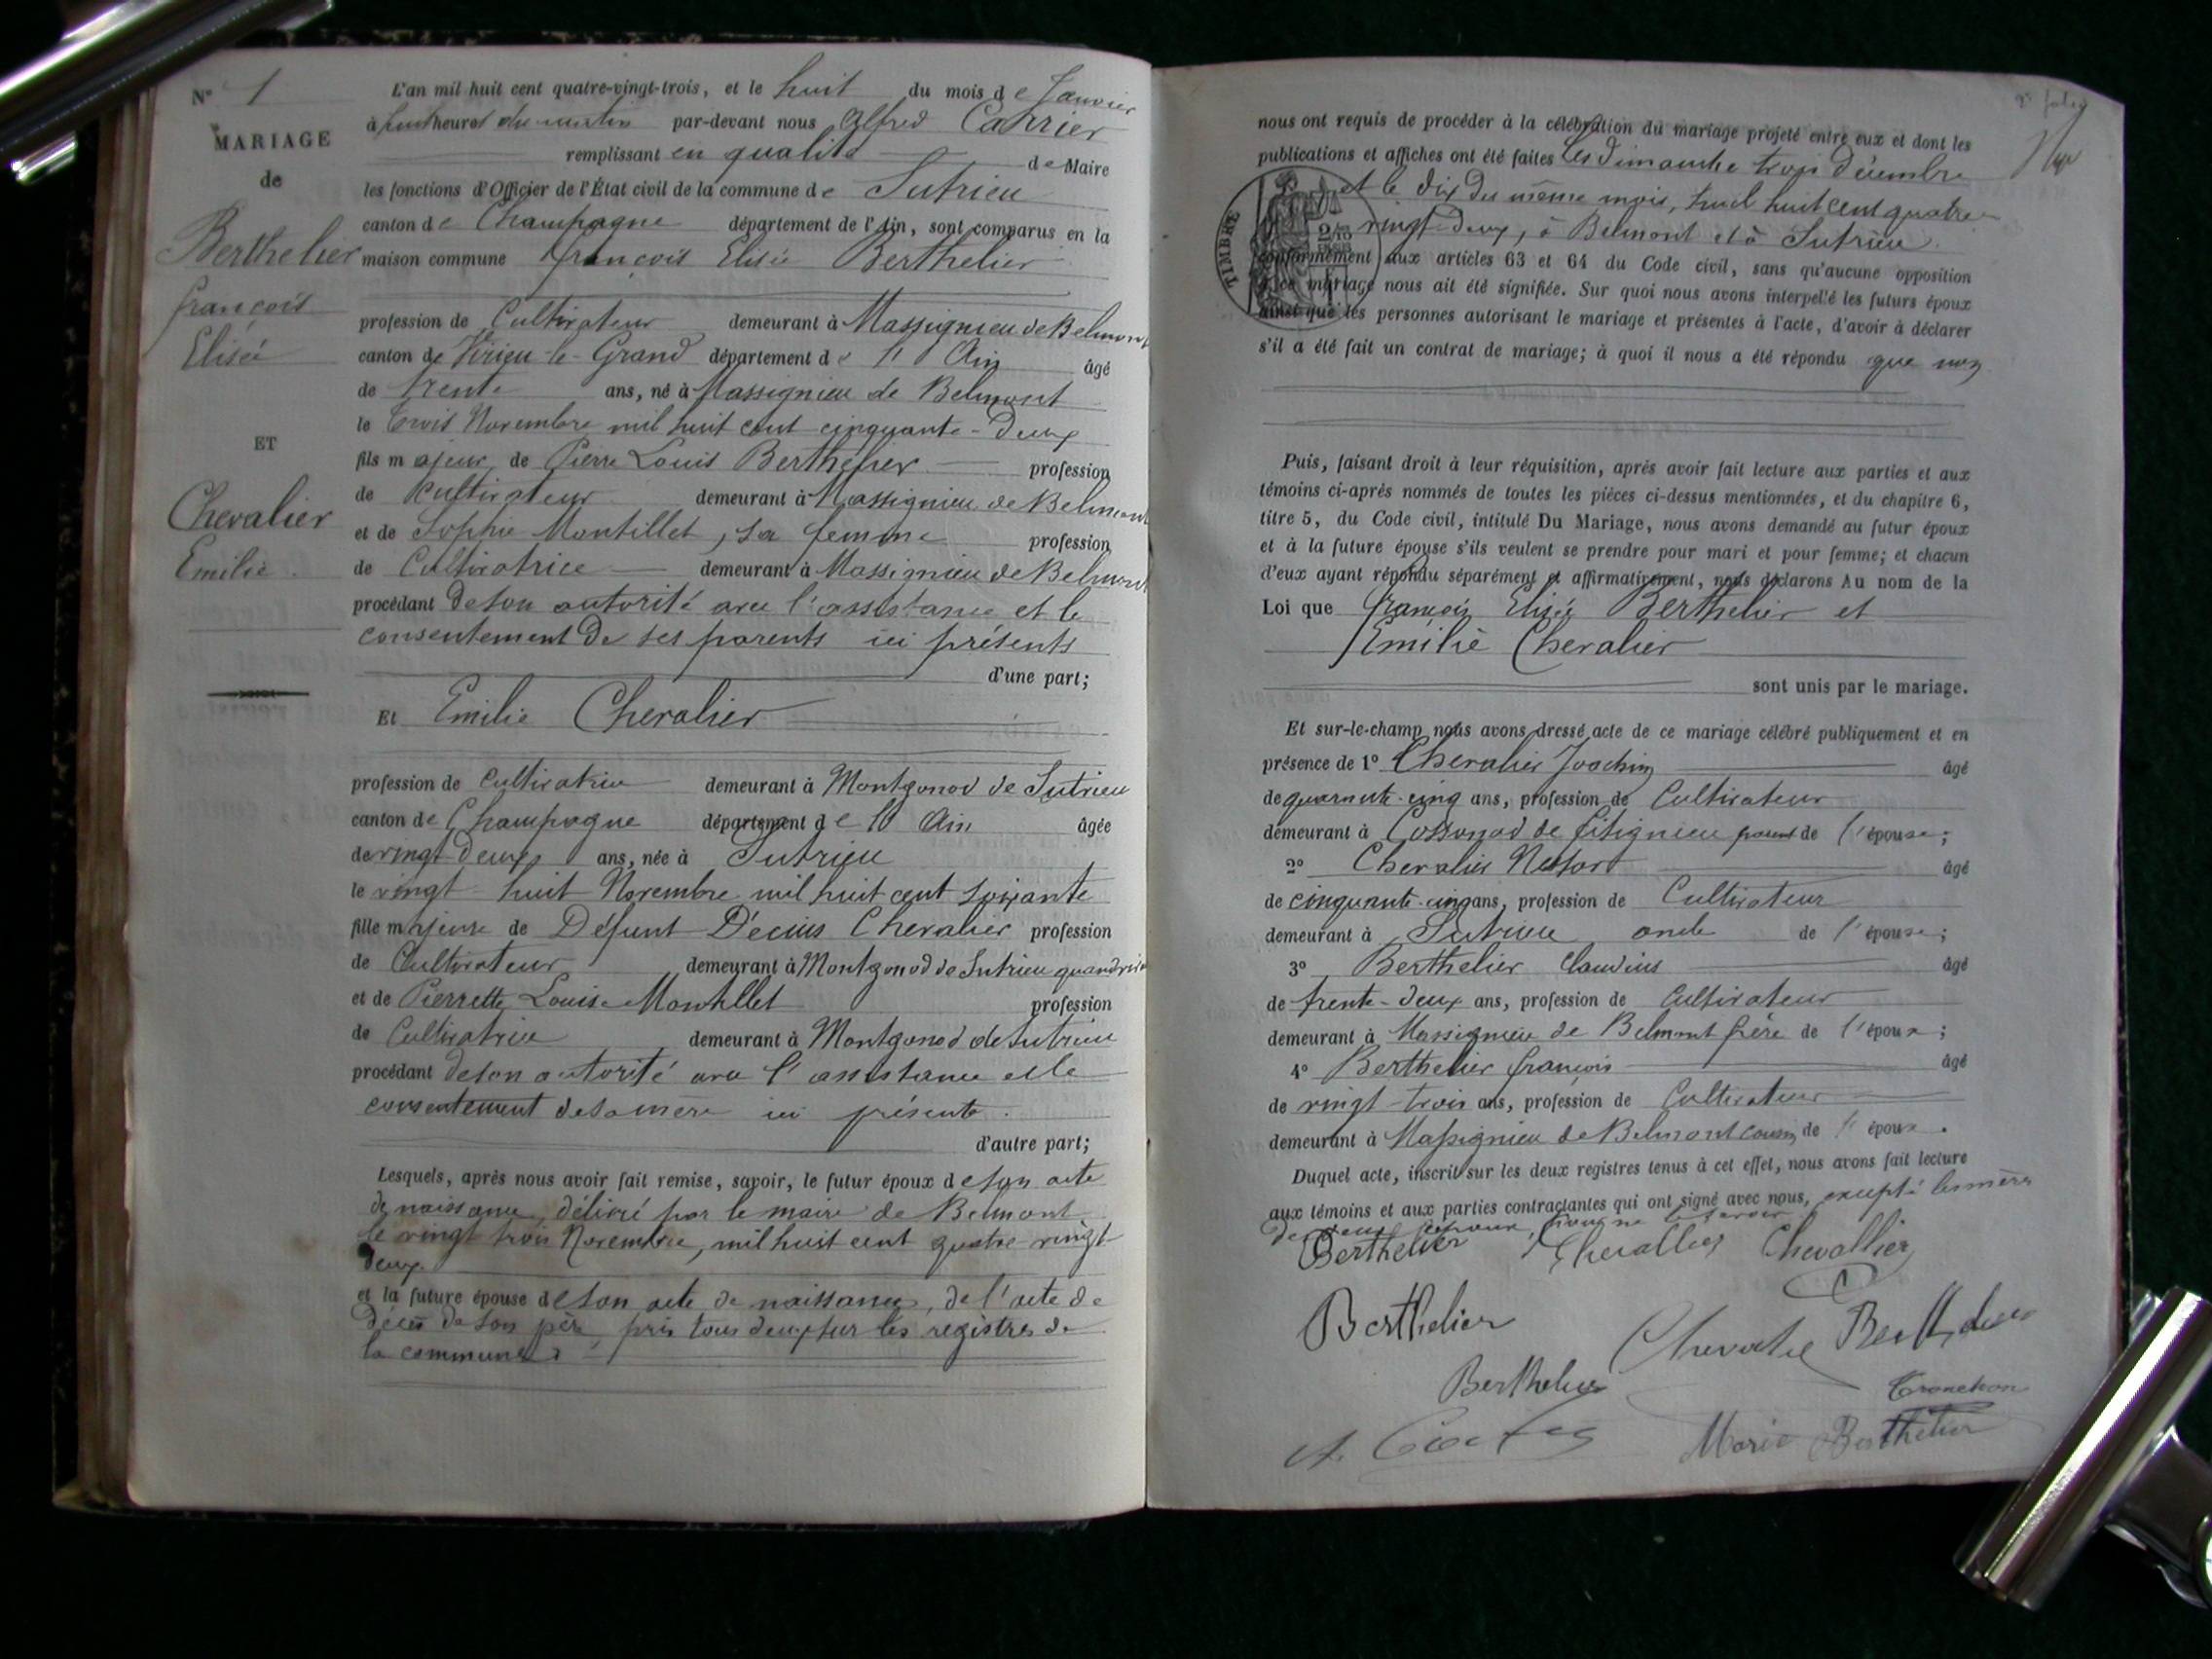 N° 1
MARIAGE
de
Berthelier
françois
Elisée
ET
Chevalier
Emilie.
L'an mil huit cent quatre-vingt-trois, et le huit du mois de Janvier
à huit heures du matin par-devant nous Alfred Carrier
remplissant en qualité de Maire
les fonctions d'Officier de l'État civil de la commune de Sutrieu
canton de Champagne département de l'Ain, sont comparus en la
maison commune françois Elisée Berthelier
profession de Cultivateur demeurant à Massignieu de Belmont
canton de Virieu-le-Grand département de l'Ain âgé
de trente ans, né à Massignieu de Belmont
le trois Novembre mil huit cent cinquante-deux
fils majeur de Pierre Louis Berthelier profession
de Cultivateur demeurant à Massignieu de Belmont
et de Sophie Montillet, sa femme profession
de Cultivatrice demeurant à Massignieu de Belmont
procédant de son autorité avec l'assistance et le
consentement de ses parents ici présents
d'une part;
Et Emilie Chevalier
profession de Cultivatrice demeurant à Montgonod de Sutrieu
canton de Champagne département de l'Ain âgée
de vingt-deux ans, née à Sutrieu
le vingt-huit Novembre mil huit cent soixante
fille majeure de Défunt Décius Chevalier profession
de Cultivateur demeurant à Montgonod de Sutrieu quand vivait
et de Pierrette Louise Montillet profession
de Cultivatrice demeurant à Montgonod de Sutrieu
procédant de son autorité avec l'assistance et le
consentement de sa mère ici présente.
d'autre part;
Lesquels, après nous avoir fait remise, savoir, le futur époux de son acte
de naissance, délivré par le maire de Belmont
le vingt trois Novembre, mil huit cent quatre-vingt
deux.
et la future épouse de son acte de naissance, de l'acte de
décès de son père, pris tous deux sur les registres de
la commune
nous ont requis de procéder à la célébration du mariage projeté entre eux et dont les
publications et affiches ont été faites les dimanche trois décembre
et le dix du même mois, mil huit cent quatre-
vingt-deux, à Belmont et à Sutrieu.
TIMBRE
conformément aux articles 63 et 64 du Code civil, sans qu'aucune opposition
à ce mariage nous ait été signifiée. Sur quoi nous avons interpellé les futurs époux
ainsi que les personnes autorisant le mariage et présentes à l'acte, d'avoir à déclarer
s'il a été fait un contrat de mariage; à quoi il nous a été répondu que non
Puis, faisant droit à leur réquisition, après avoir fait lecture aux parties et aux
témoins ci-après nommés de toutes les pièces ci-dessus mentionnées, et du chapitre 6,
titre 5, du Code civil, intitulé Du Mariage, nous avons demandé au futur époux
et à la future épouse s'ils veulent se prendre pour mari et pour femme; et chacun
d'eux ayant répondu séparément et affirmativement, nous déclarons Au nom de la
Loi que françois Elisée Berthelier et
Emilie Chevalier
sont unis par le mariage.
Et sur-le-champ nous avons dressé acte de ce mariage célébré publiquement et en
présence de 1° Chevalier Joachim âgé
de quarante-cinq ans, profession de Cultivateur
demeurant à Cossonod de fitignieu parent de l'épouse;
2° Chevalier Nestor âgé
de cinquante-cinq ans, profession de Cultivateur
demeurant à Sutrieu oncle de l'épouse;
3° Berthelier Claudius âgé
de trente-deux ans, profession de Cultivateur
demeurant à Massignieu de Belmont frère de l'époux;
4° Berthelier françois âgé
de vingt-trois ans, profession de Cultivateur
demeurant à Massignieu de Belmont cousin de l'époux.
Duquel acte, inscrit sur les deux registres tenus à cet effet, nous avons fait lecture
aux témoins et aux parties contractantes qui ont signé avec nous, excepté les mères
des deux époux, pour ne le savoir
Berthelier Chevallier Chevallier
Berthelier Chevalie Berthelier
Berthelier Tronchon
Marie Berthelier